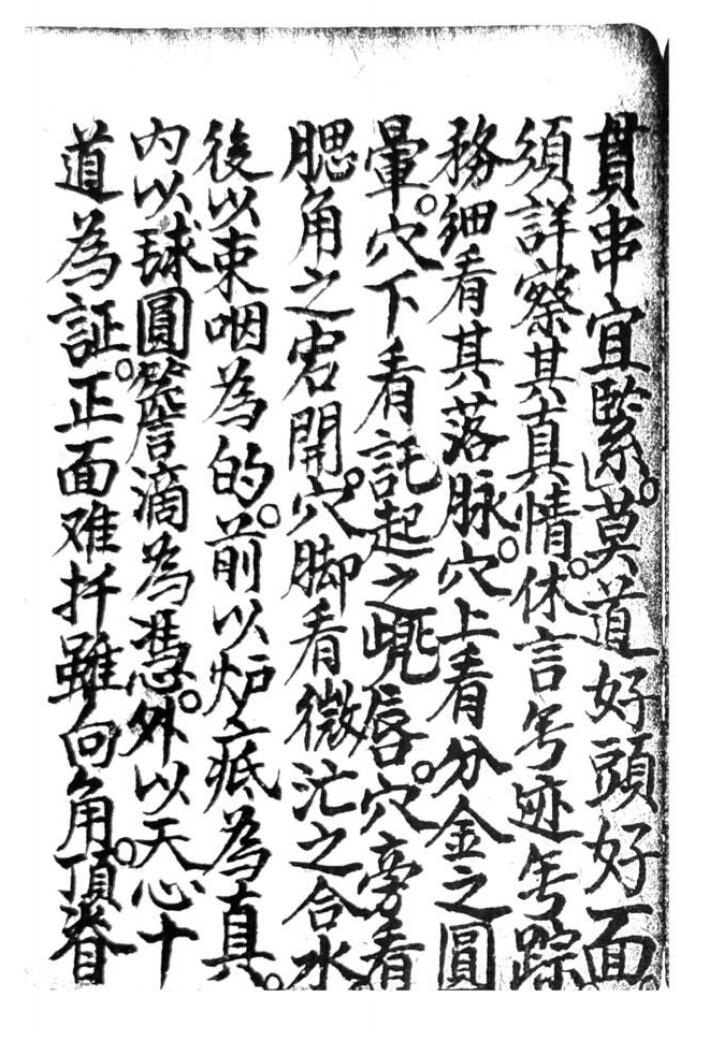 貫串宜緊。莫道好頭好面。
須詳察其真情。休言無迹無踪
務細看其落脉。穴上看分金之圓
暈。穴下看託起之兜唇。穴旁看
腮角之宕開。穴脚看微茫之合水
後以束咽為的。前以炉底為真。
内以球圓簷滴為憑。外以天心十
道為証。正面难扦雖向角。頂脊